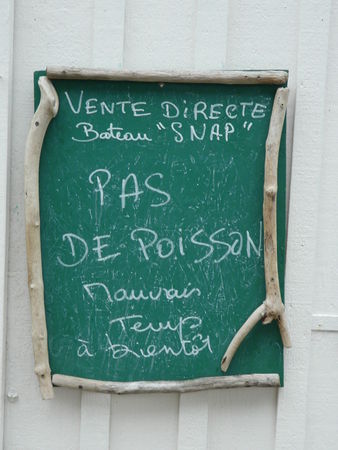 VENTE DiRECTE
Bateau "SNAP"
PAS
DE POISSON
Mauvais
Temps
à bientôt